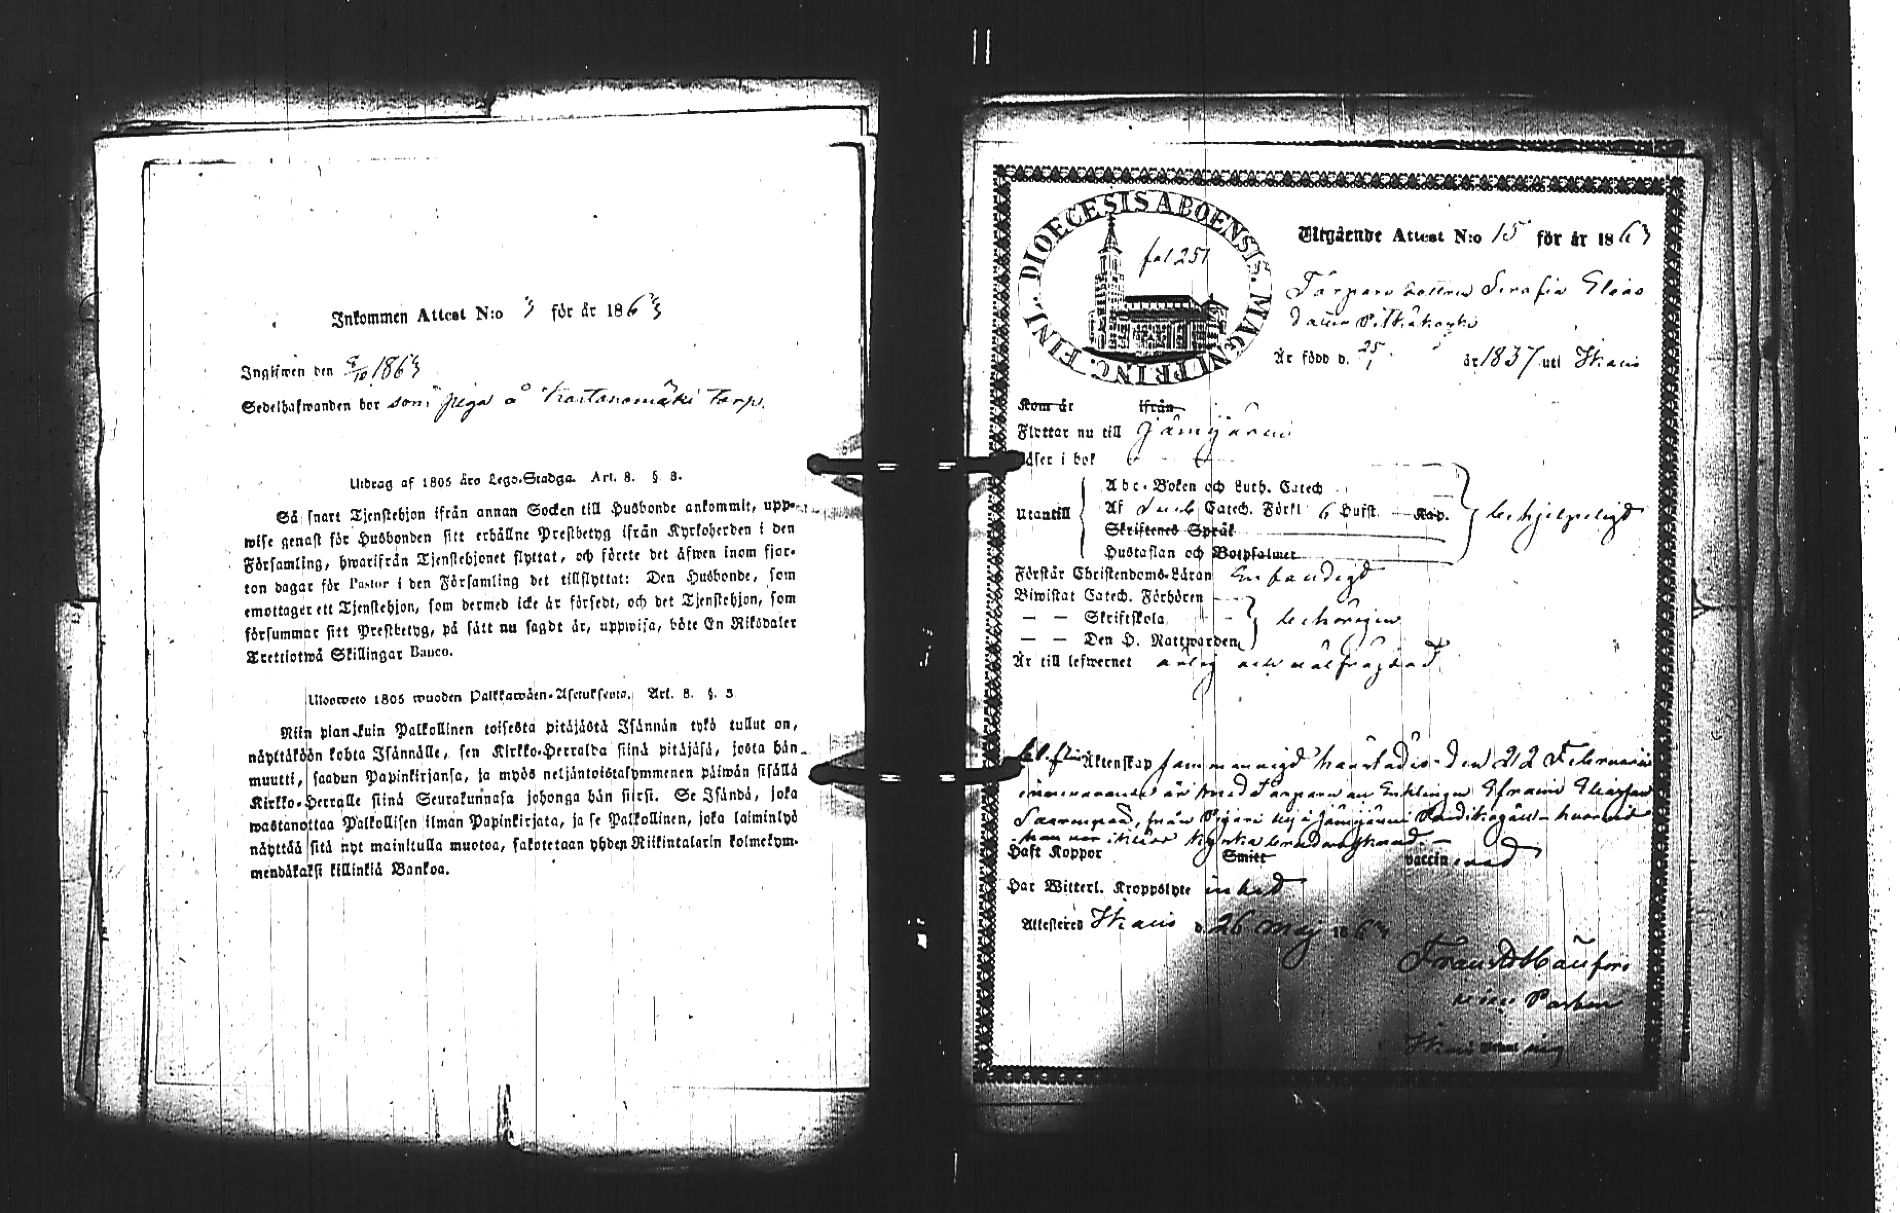 Inkommen Attest N:o 3 för år 1863
Ingifwen den 5/10 1863
Sedelhafwanden bor som piga å Kartanomäki torp.
Utdrag af 1805 års Lego-Stadga. Art. 8. § 3.
Så snart Tjenstehjon ifrån annan Socken till Husbonde ankommit, upp-
wise genast för Husbonden sitt erhållne Prestbetyg ifrån Kyrkoherden i den
Församling, hwarifrån Tjenstehjonet flyttat, och förete det äfwen inom fjor-
ton dagar för Pastor i den Församling det tillflyttat: Den Husbonde, som
emottager ett Tjenstehjon, som dermed icke är försedt, och det Tjenstehjon, som
försummar sitt Prestbetyg, på sätt nu sagdt är, uppwisa, böte En Riksdaler
Trettiotwå Skillingar Banco.
Ulosweto 1805 wuoden Palkkawäen-Asetuksesta. Art. 8. §. 3
Niin pian kuin Palkollinen toisesta pitäjästä Isännän tykö tullut on,
näyttäköön kohta Isännälle, sen Kirkko-Herralda siinä pitäjäsä, josta hän
muutti, saadun Papinkirjansa, ja myös neljäntoistakymmenen päiwän sisällä
Kirkko-Herralle siinä Seurakunnasa johonga hän siirsi. Se Isändä, joka
wastanottaa Palkollisen ilman Papinkirjata, ja se Palkollinen, joka laiminlyö
näyttää sitä nyt mainitulla muotoa, sakotetaan yhden Riikintalarin kolmekym-
mendäkaksi killinkiä Bankoa.
DIOECESIS ABOENSIS. MAGNI PRINC. FINL.
fol 251
Utgående Attest N:o 15 för år 1863
Torpare dottren Serafia Elias
dotter Pitkäkoski
Är född d. 25/1 år 1837 uti Ikalis
Kom år ifrån
Flyttar nu till Jämijärvi
Läser i bok
Utantill
Abc-Boken och Luth. Catech
Af Catech. Förkl 6 Hufst. Kap.
Skriftenes Språk
Hustaflan och Botpsalmer
behjelpeligt
Förstår Christendoms-Läran Enfaldigt
Biwistat Catech. Förhören
— — Skriftskola
— — Den H. Nattwarden
behörigen
Är till lefwernet ärlig och välfrägdad
Äktenskap den 22 Februarii
innevarande år med torparen Enklingen Efraim Eliasson
från Jämijärvi
Haft Koppor Smitt vaccinerad
Har Witterl. Kroppslyte intet
Attesteras Ikalis d 26 Maj 1863
Pastor